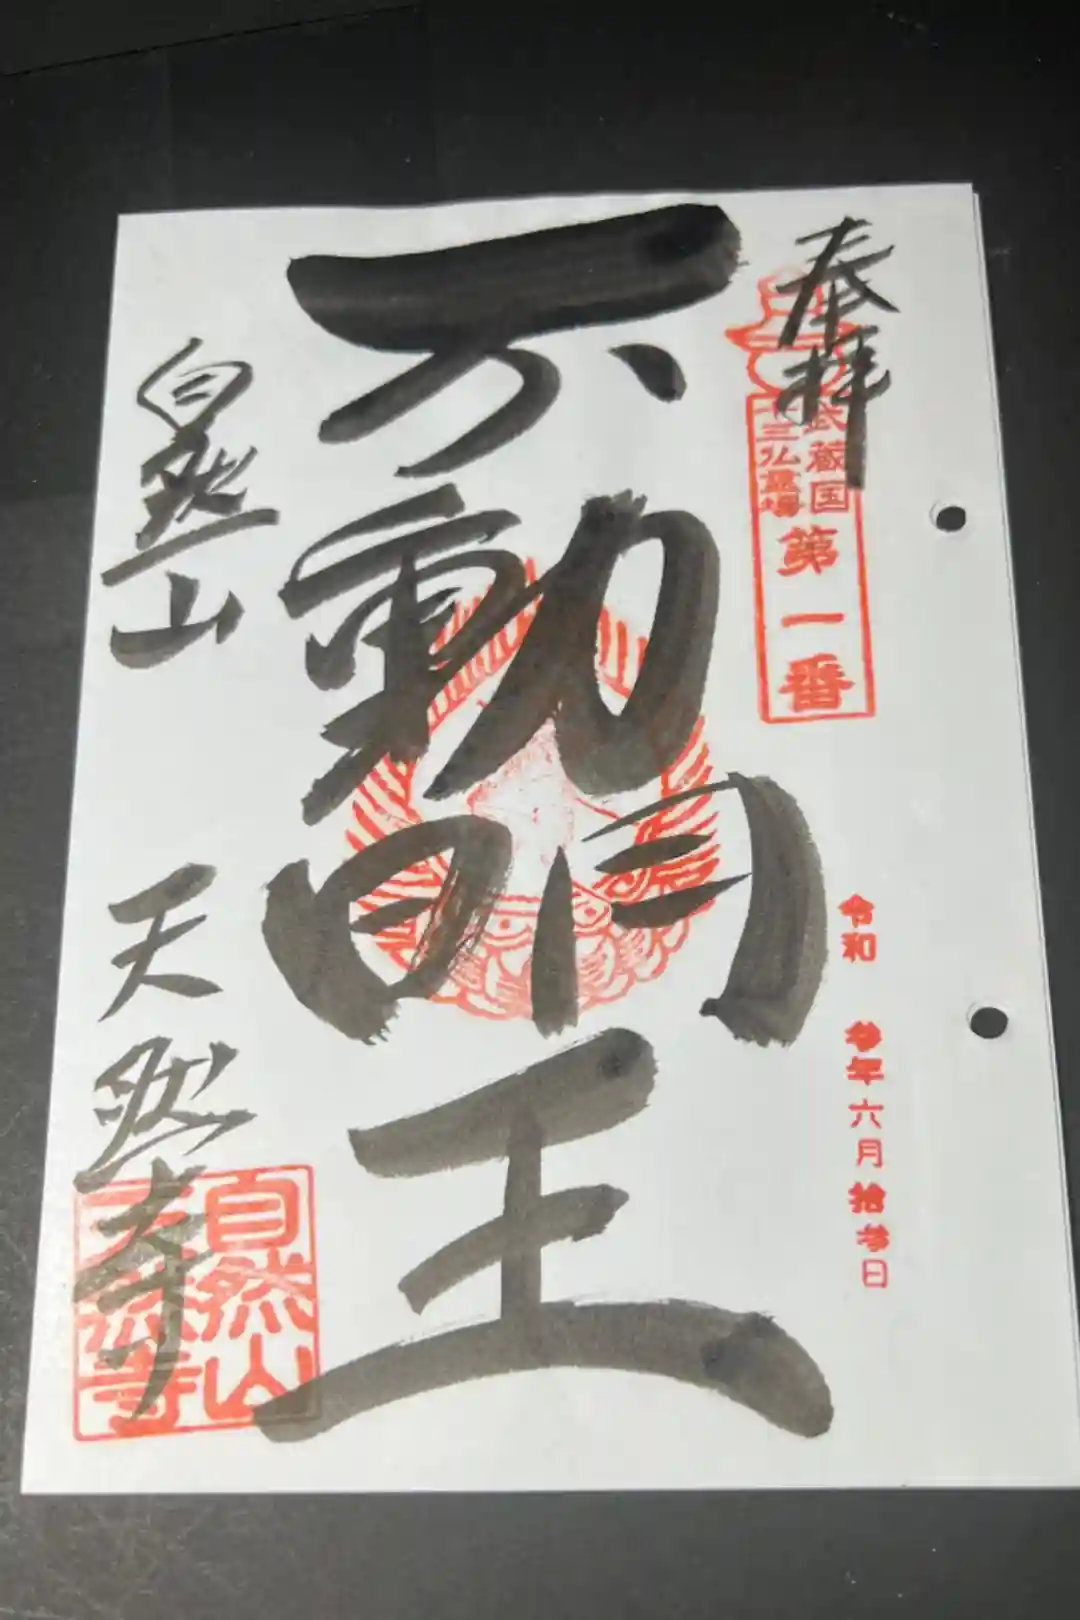 奉拝
武蔵国
十三仏霊場
第一番
令和 参年六月拾参日
不動明王
自然山
天然寺
自然山
天然寺